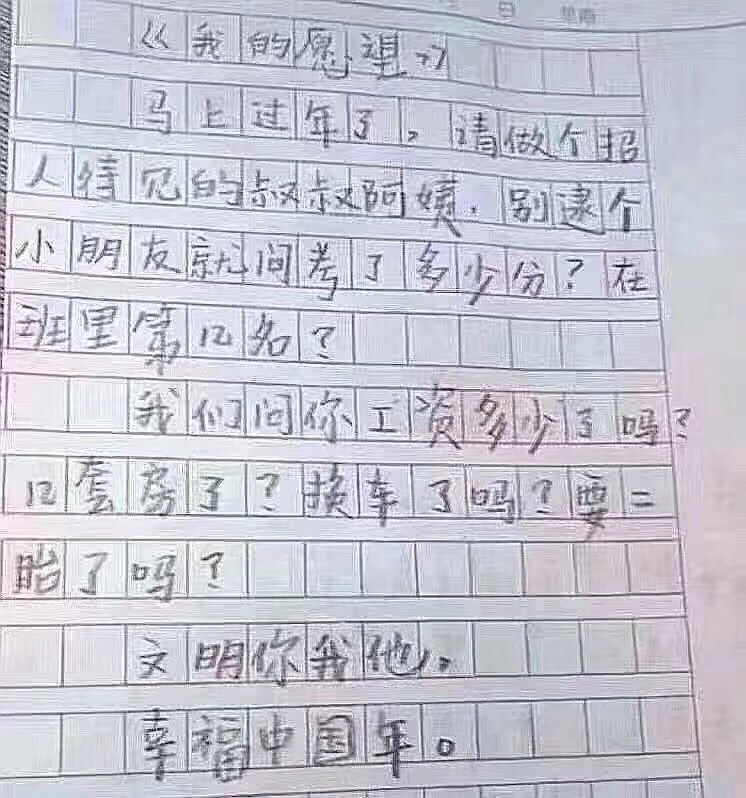 日 星期
《我的愿望》
马上过年了，请做个招
人待见的叔叔阿姨，别逮个
小朋友就问考了多少分？在
班里第几名？
我们问你工资多少了吗？
几套房了？换车了吗？要二
胎了吗？
文明你我他，
幸福中国年。